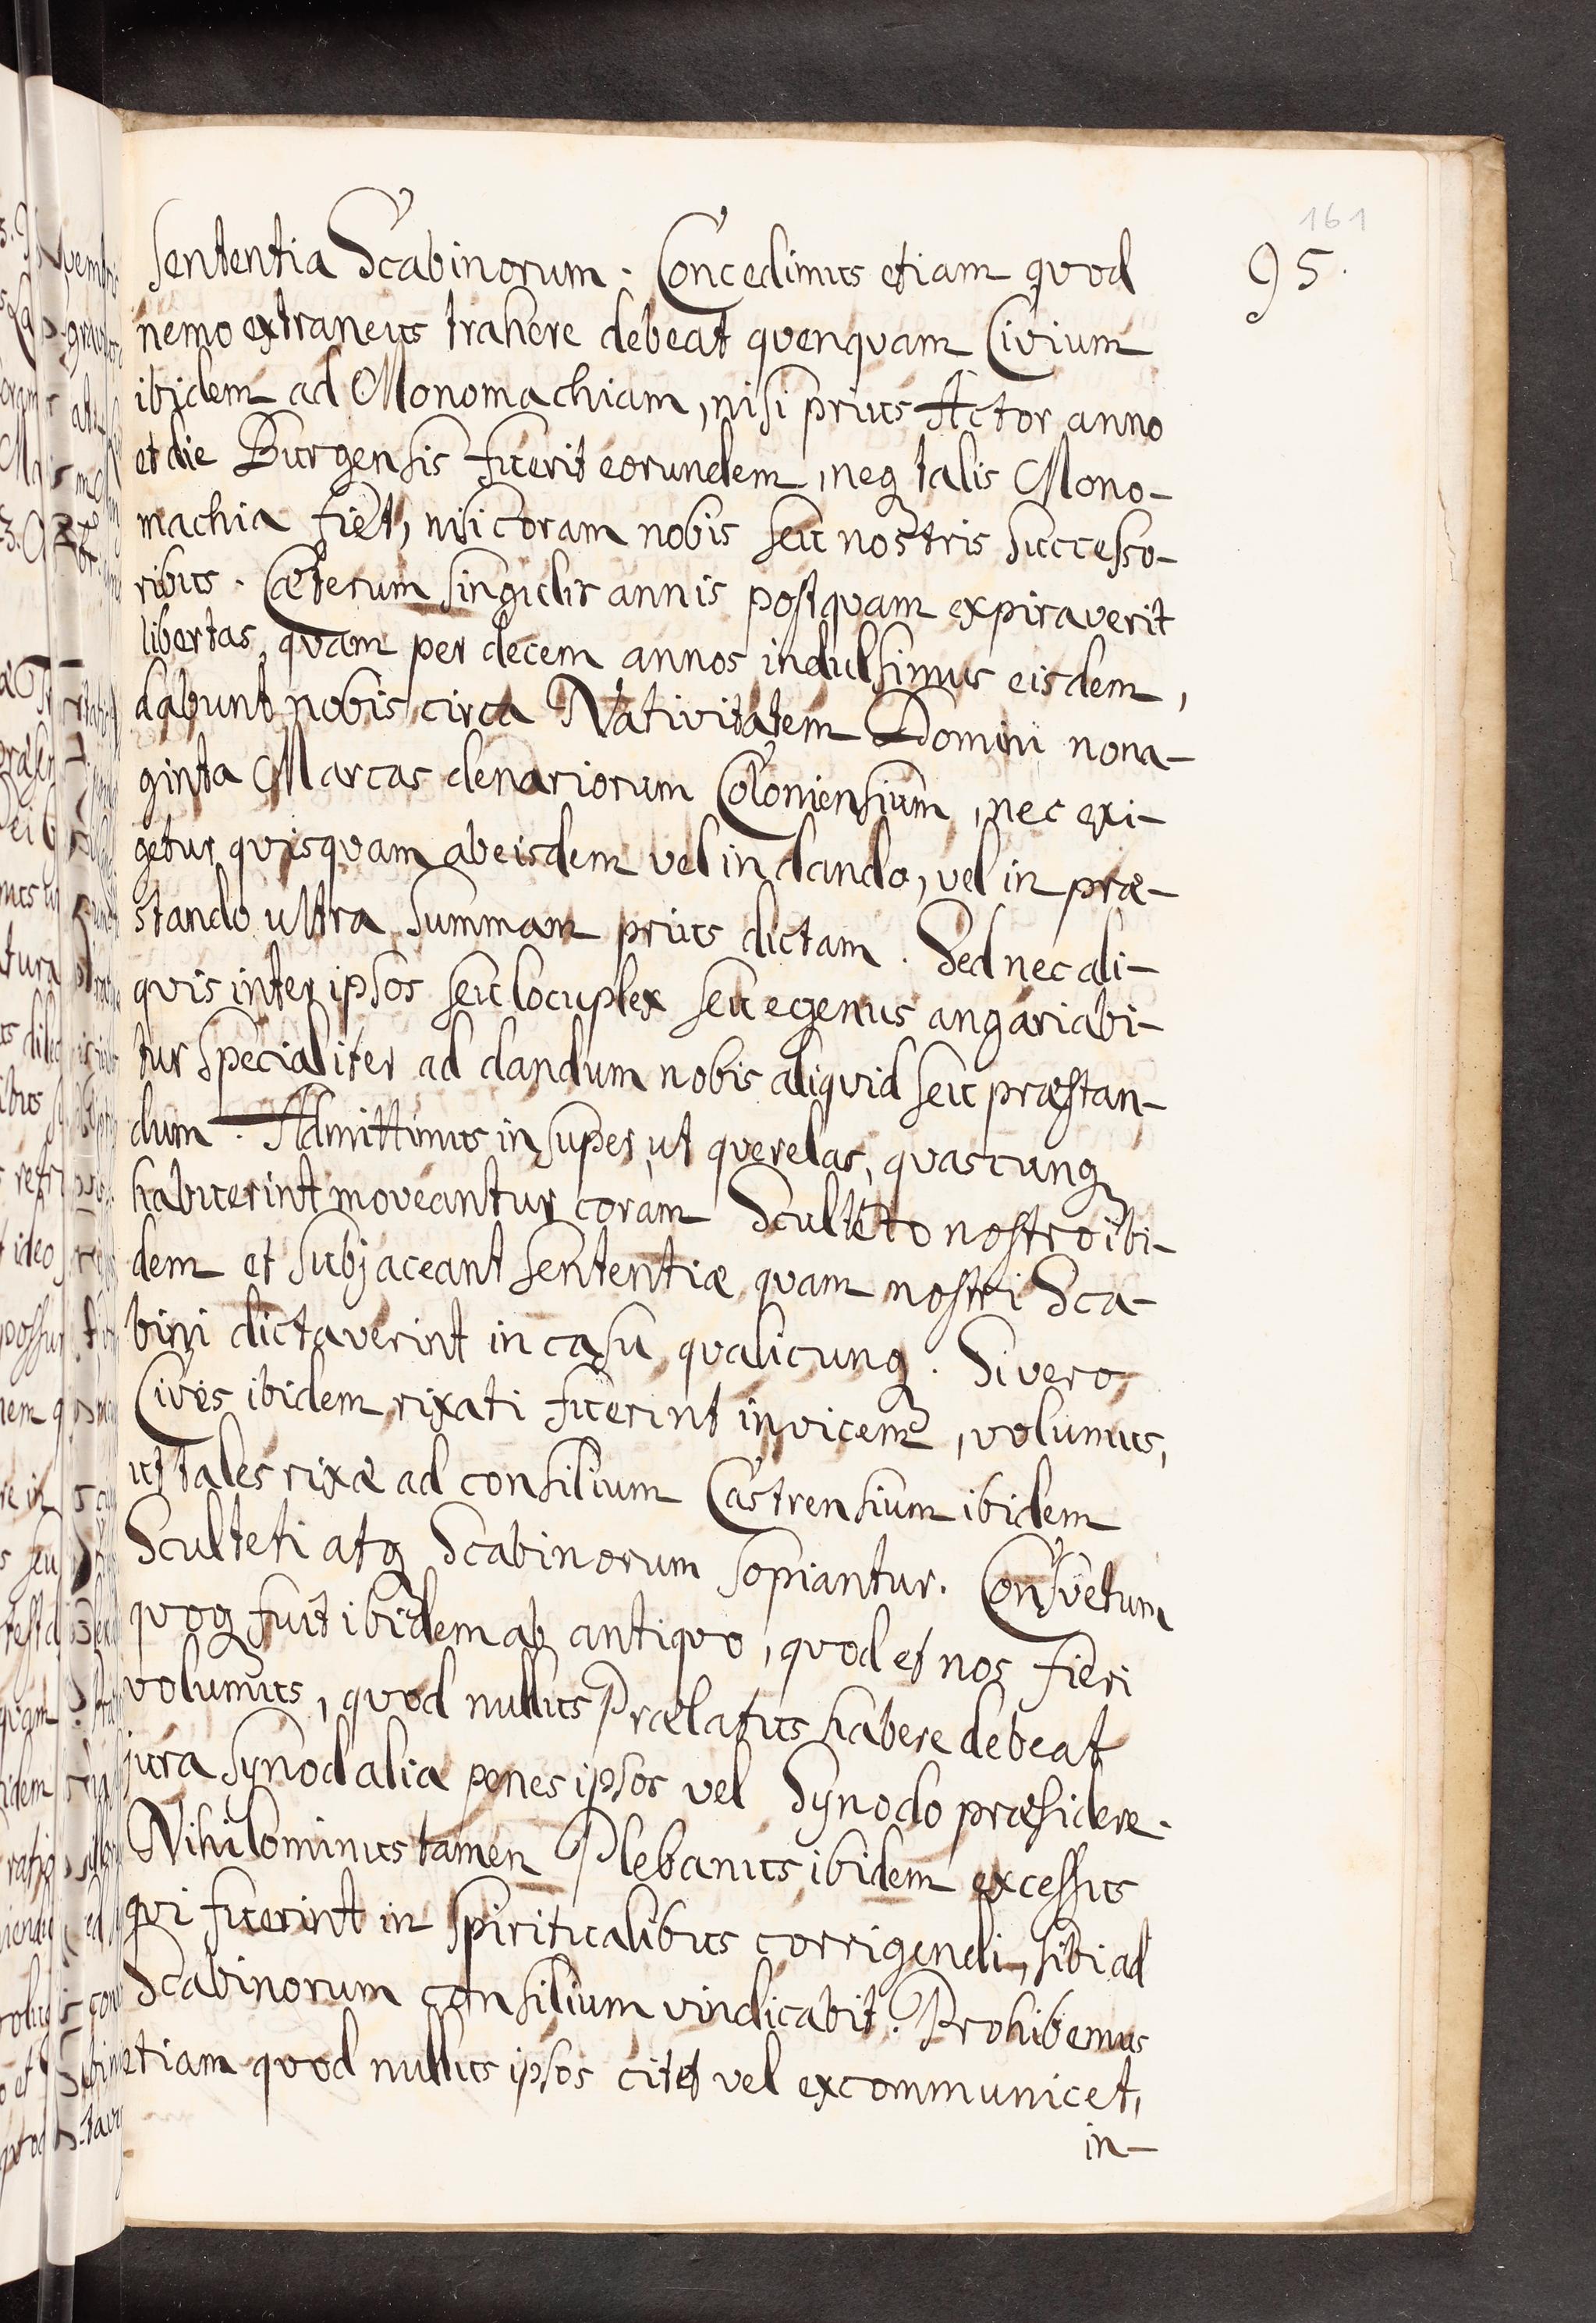 161
95.
sententia Scabinorum. Concedimus etiam quod
nemo extraneus trahere debeat quenquam Civium
ibidem ad Monomachiam, nisi prius Actor anno
et die Burgensis fuerit eorundem, neq talis Mono-
machia fiet, nisi coram nobis seu nostris successo-
ribus. Cæterum singulis annis postquam expiraverit
libertas, quam per decem annos indulsimus eisdem,
dabunt nobis circa Nativitatem Domini nona-
ginta Marcas denariorum Coloniensium, nec exi-
getur quisquam ab eisdem vel in dando, vel in præ-
stando ultra summam prius dictam. Sed nec ali-
quis inter ipsos seu locuplex seu egenus angariabi-
tur specialiter ad dandum nobis aliquid seu præstan-
dum. Admittimus insuper, ut querelas, quascunq
habuerint moveantur coram Sculteto nostro ibi-
dem et subjaceant sententiæ quam nostri Sca-
bini dictaverint in casu qualicunq. Si vero
Cives ibidem rixati fuerint invicem, volumus,
ut tales rixæ ad consilium Castrensium ibidem
Sculteti atq Scabinorum sopiantur. Consvetum
quoq fuit ibidem ab antiquo, quod et nos fieri
volumus, quod nullus Prælatus habere debeat
jura synodalia penes ipsos vel Synodo præsidere.
Nihilominus tamen Plebanus ibidem excessus
qui fuerint in spiritualibus corrigendi, sibi ad
Scabinorum consilium vindicabit. Prohibemus
etiam quod nullus ipsos citet vel excommunicet,
in-